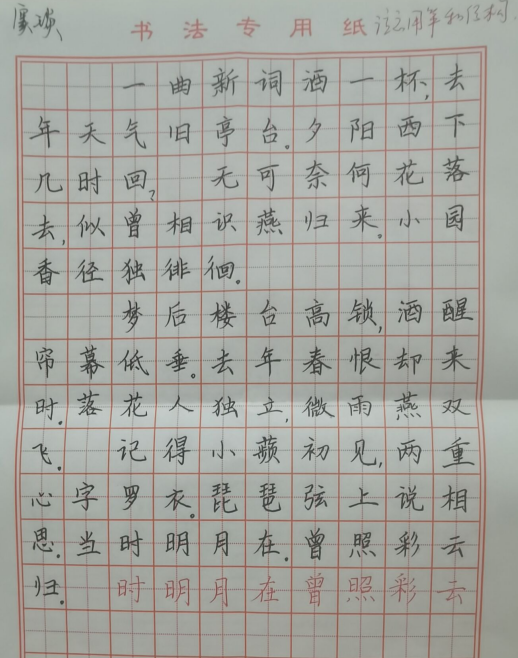 书法专用纸
一曲新词酒一杯,去
年天气旧亭台。夕阳西下
几时回?无可奈何花落
去,似曾相识燕归来。小园
香径独徘徊。
梦后楼台高锁,酒醒
帘幕低垂。去年春恨却来
时。落花人独立,微雨燕双
飞。记得小蘋初见,两重
心字罗衣。琵琶弦上说相
思。当时明月在。曾照彩云
归。时明月在曾照彩云